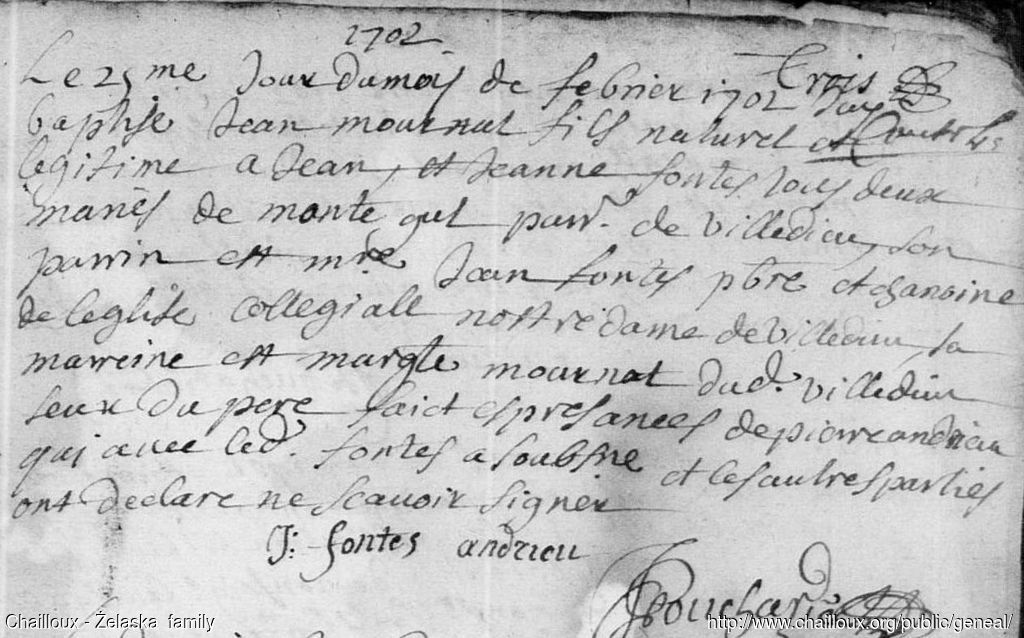 1702
Trois
Le 25me Jour du mois de febrier 1702 Jay
baptise Jean mournat fils naturel et
legitime a Jean, et Jeanne fontes tous deux
mariés de monte gut parr. de villedieu, son
parrin est mre Jean fontes pbre et chanoine
de leglise collegialle nostre dame de villedieu, sa
marreine est margte mournat dud. villedieu
seur du pere faict es presances de pierre andrieu
qui avec led. fontes a soubsne et les autres parties
ont declare ne scavoir signer
J: fontes andrieu
Bouchard
Chailloux - Żelaska family
http://www.chailloux.org/public/geneal/